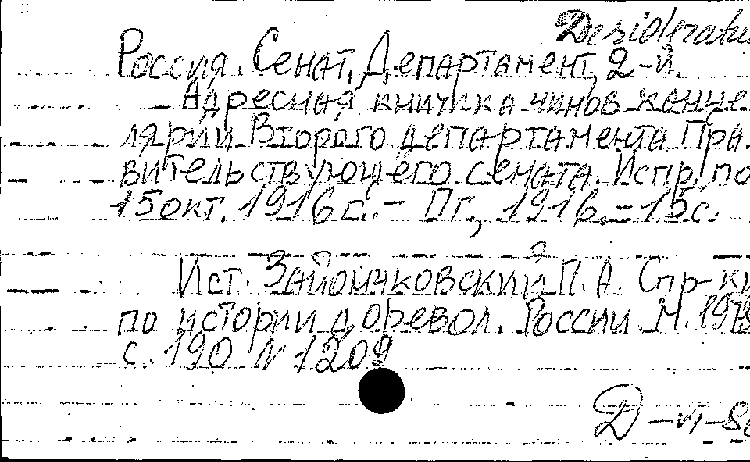 Desideratu
Россия. Сенат. Департамент, 2-й.
Адресная книжка чинов канце
лярии Второго департамента Пра-
вительствующего сената. Испр. по
15 окт. 1916 г. – Пг., 1916. – 15 с.
Ист. Зайончковский П. А. Спр-к
по истории доревол. России. М. 197
с. 190 N 1209
Д – VI –